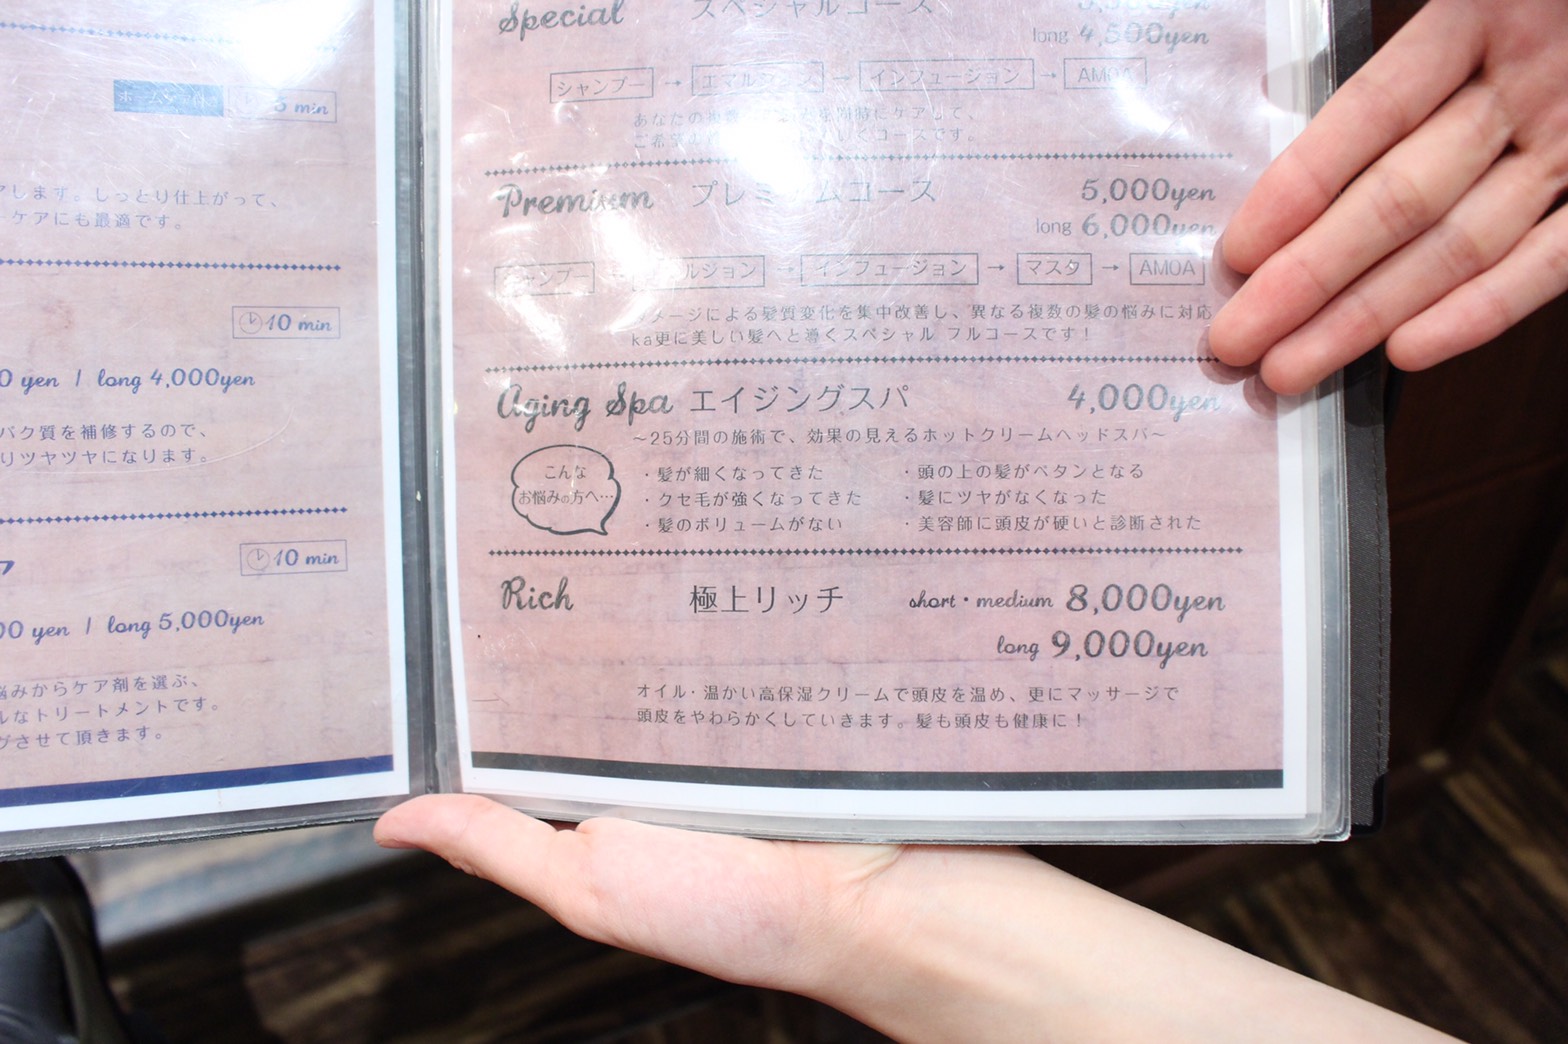 5 min
アします。しっとり仕上がって、
ケアにも最適です。
10 min
0 yen / long 4,000yen
パク質を補修するので、
りツヤツヤになります。
10 min
00 yen / long 5,000yen
悩みからケア剤を選ぶ、
ルなトリートメントです。
グさせて頂きます。
Special スペシャルコース
long 4,500yen
シャンプー → エマルジョン → インフュージョン → AMOA
あなたの
コースです。
Premium プレミアムコース 5,000yen
long 6,000yen
シャンプー ルジョン → インフュージョン → マスタ → AMOA
メージによる髪質変化を集中改善し、異なる複数の髪の悩みに対応
ka更に美しい髪へと導くスペシャル フルコースです！
Aging Spa エイジングスパ 4,000yen
～25分間の施術で、効果の見えるホットクリームヘッドスパ～
こんな
お悩みの方へ…
・髪が細くなってきた ・頭の上の髪がペタンとなる
・クセ毛が強くなってきた ・髪にツヤがなくなった
・髪のボリュームがない ・美容師に頭皮が硬いと診断された
Rich 極上リッチ short・medium 8,000yen
long 9,000yen
オイル・温かい高保湿クリームで頭皮を温め、更にマッサージで
頭皮をやわらかくしていきます。髪も頭皮も健康に！